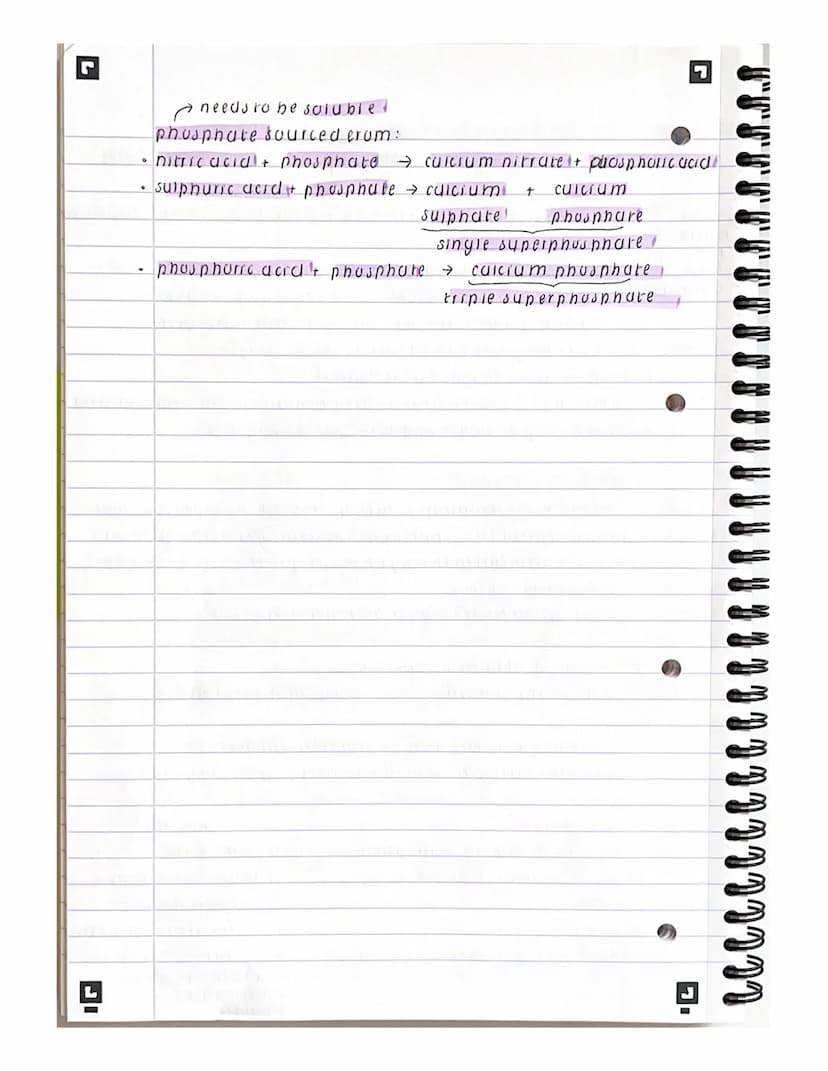 needs to be soluble
phosphate sourced from:
• nitric acid + phosphate → calcium nitrate + phosphoric acid
• sulphuric acid + phosphate → calcium + calcium
sulphate phosphate
single superphosphate
• phosphoric acid + phosphate → calcium phosphate
triple superphosphate